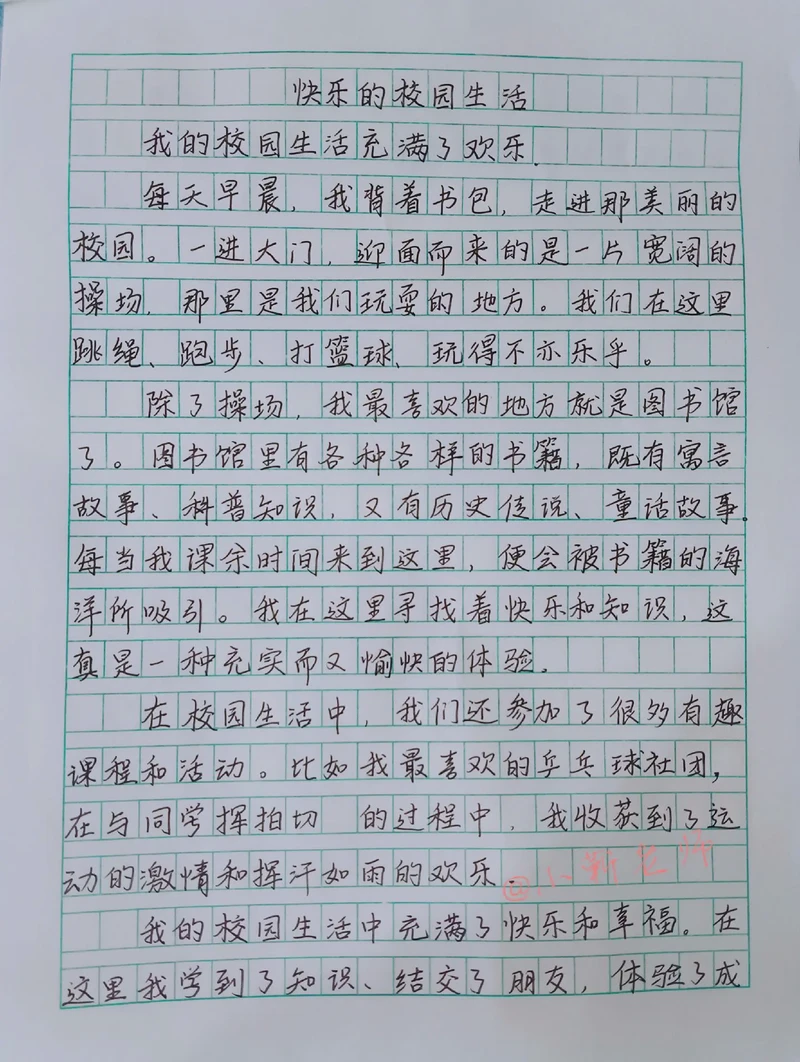 快乐的校园生活
我的校园生活充满了欢乐.
每天早晨，我背着书包，走进那美丽的
校园。一进大门，迎面而来的是一片宽阔的
操场，那里是我们玩耍的地方。我们在这里
跳绳、跑步、打篮球、玩得不亦乐乎。
除了操场，我最喜欢的地方就是图书馆
了。图书馆里有各种各样的书籍，既有寓言
故事、科普知识，又有历史传说、童话故事。
每当我课余时间来到这里，便会被书籍的海
洋所吸引。我在这里寻找着快乐和知识，这
真是一种充实而又愉快的体验.
在校园生活中，我们还参加了很多有趣
课程和活动。比如我最喜欢的乒乓球社团，
在与同学挥拍切 的过程中，我收获到了运
动的激情和挥汗如雨的欢乐.
@小新老师
我的校园生活中充满了快乐和幸福。在
这里我学到了知识、结交了朋友，体验了成